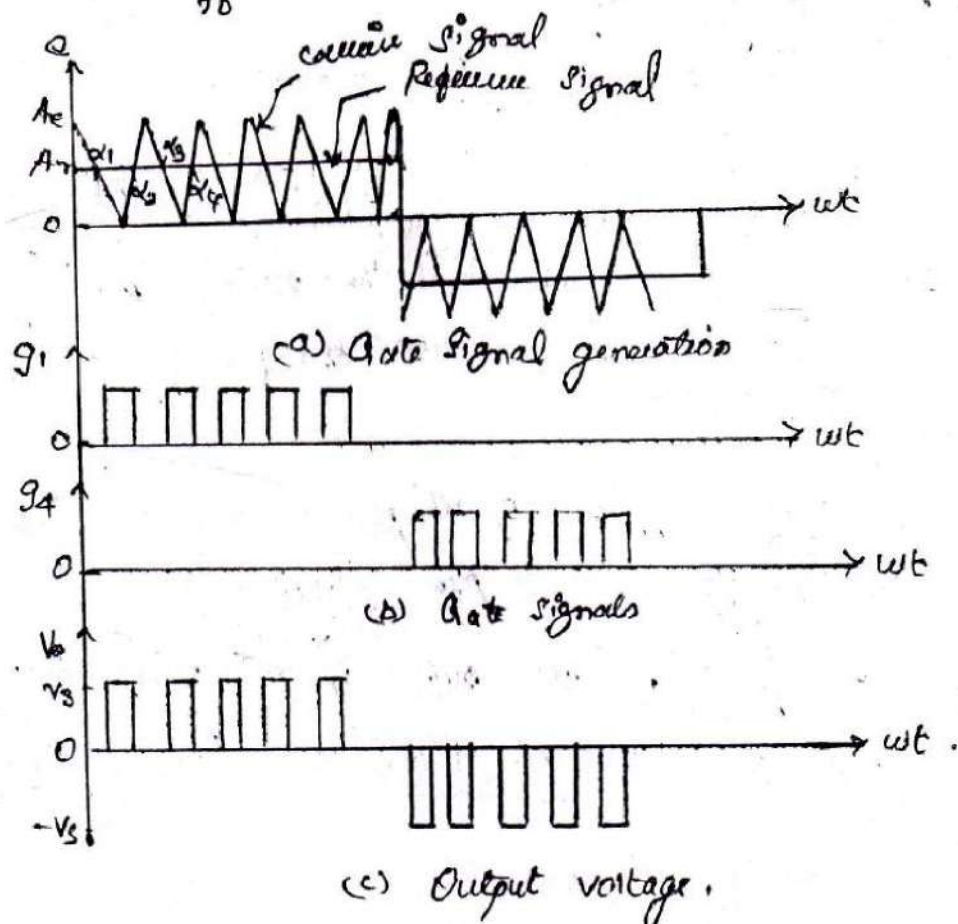 e
carrier signal
Reference signal
Ac
Ar
α1
α2
α3
α4
0
wt
(a) Gate signal generation
g1
0
wt
g4
0
wt
(b) Gate signals
Vo
Vs
0
wt.
-Vs
(c) Output voltage.